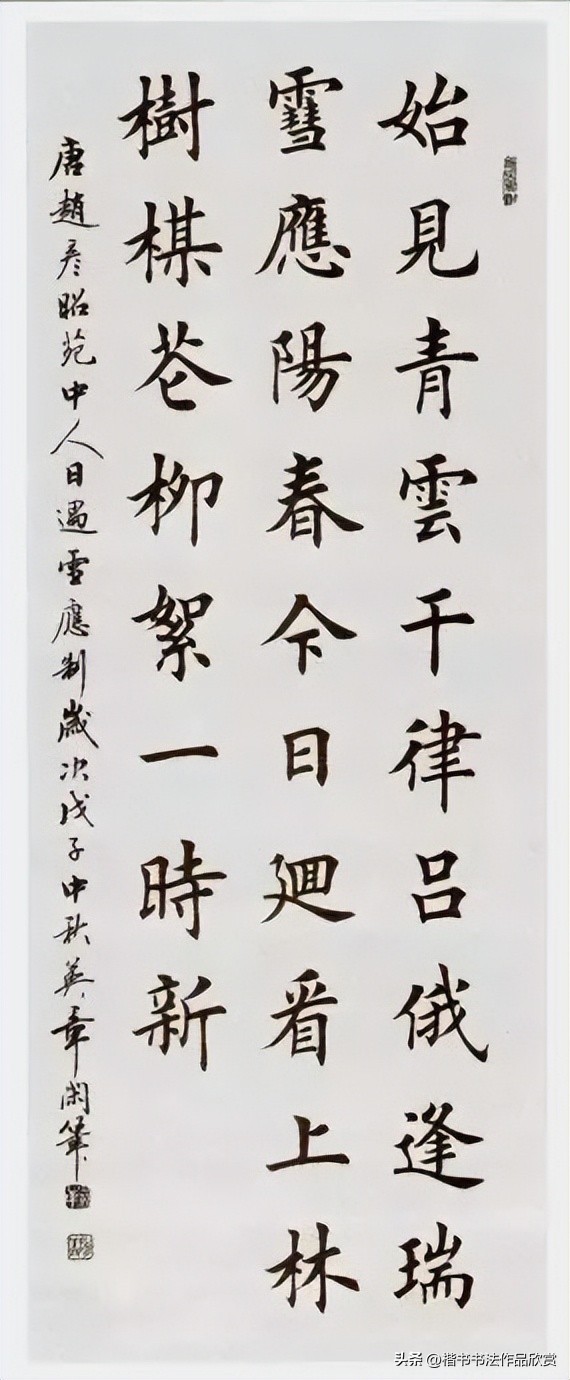 始見青雲干律呂俄逢瑞
雪應陽春今日廻看上林
樹楳芲柳絮一時新
唐趙彥昭苑中人日遇雪應制歲次戊子中秋英章閑筆
头条 @楷书书法作品欣赏